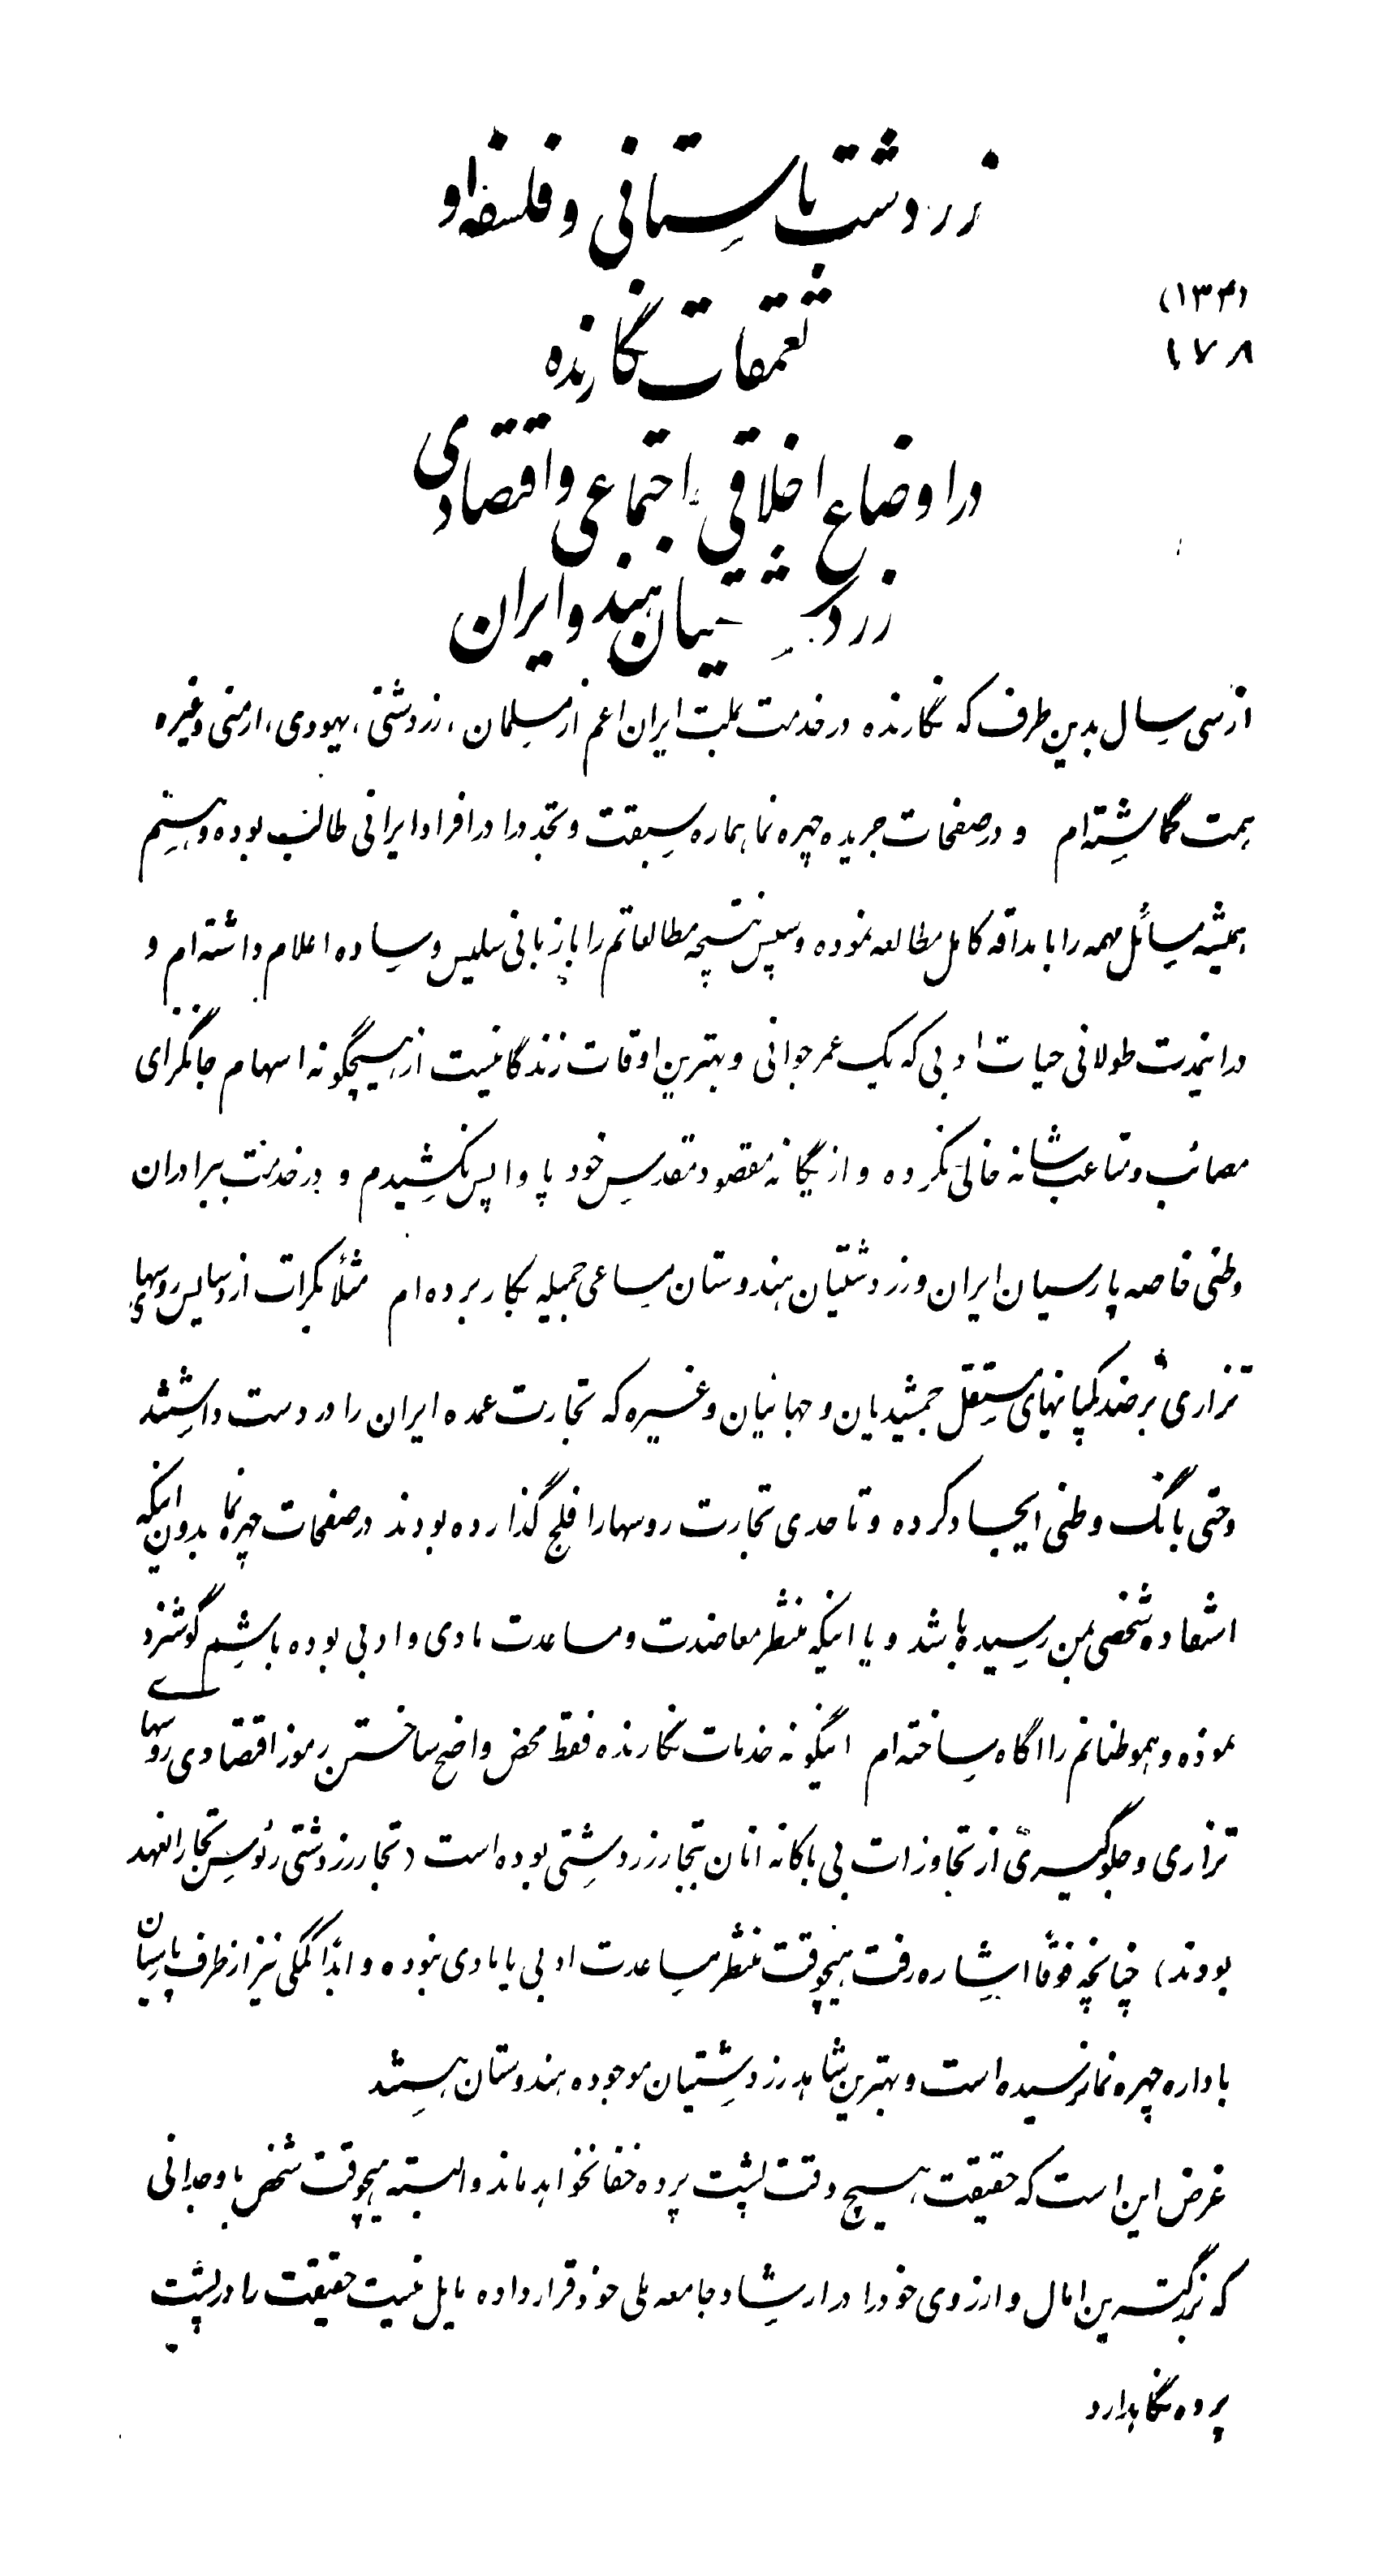 زردشت باستانی و فلسفه او
(۱۳۴)
۱۷۸
تعمقات نگارنده
در اوضاع اخلاقی، اجتماعی و اقتصادی
زردشتیان هند و ایران
از سی سال بدین طرف که نگارنده در خدمت بملت ایران اعم از مسلمان، زردشتی، یهودی، ارمنی و غیره
همت گماشته‌ام و در صفحات جریده چهره نما هماره سبقت و تجدد را در افراد ایرانی طالب بوده و هستم
همیشه مسائل مهمه را با مداقه کامل مطالعه نموده و سپس نتیجه مطالعاتم را با زبانی سلیس و ساده اعلام داشته‌ام و
در اینمدت طولانی حیات ادبی که یک عمر جوانی و بهترین اوقات زندگانیست از هیچگونه اسهام جانگزای
مصائب و متاعب شانه خالی نکرده و از یگانه مقصود مقدس خود پا واپس نکشیدم و در خدمت ببرادران
وطنی خاصه پارسیان ایران و زردشتیان هندوستان مساعی جمیله بکار برده‌ام مثلاً بکرات از دسایس روسهای
تزاری بر ضد کمپانیهای مستقل جمشیدیان و جهانیان و غیره که تجارت عمده ایران را در دست داشتند
و حتی بانگ وطنی ایجاد کرده و تا حدی تجارت روسها را فلج گذارده بودند در صفحات چهره نما بدون اینکه
استفاده شخصی بمن رسیده باشد و یا اینکه منتظر معاضدت و مساعدت مادی و ادبی بوده باشم گوشزد
نموده و هموطنانم را اگاه ساخته‌ام اینگونه خدمات نگارنده فقط محض واضح ساختن رموز اقتصادی روسهای
تزاری و جلوگیری از تجاوزات بی باکانه انان بتجار زردشتی بوده است (تجار زردشتی رئوس تجار انعهد
بودند) چنانچه فوقاً اشاره رفت هیچوقت منتظر مساعدت ادبی یا مادی نبوده و ابداً کمکی نیز از طرف پارسیان
باداره چهره نما نرسیده است و بهترین شاهد زردشتیان موجوده هندوستان هستند
غرض این است که حقیقت هیچ وقت پشت پرده خفا نخواهد ماند و البته هیچوقت شخص با وجدانی
که بزرگترین امال و ارزوی خود را در ارشاد جامعه ملی خود قرار داده مایل نیست حقیقت را در پشت
پرده نگاهدارد